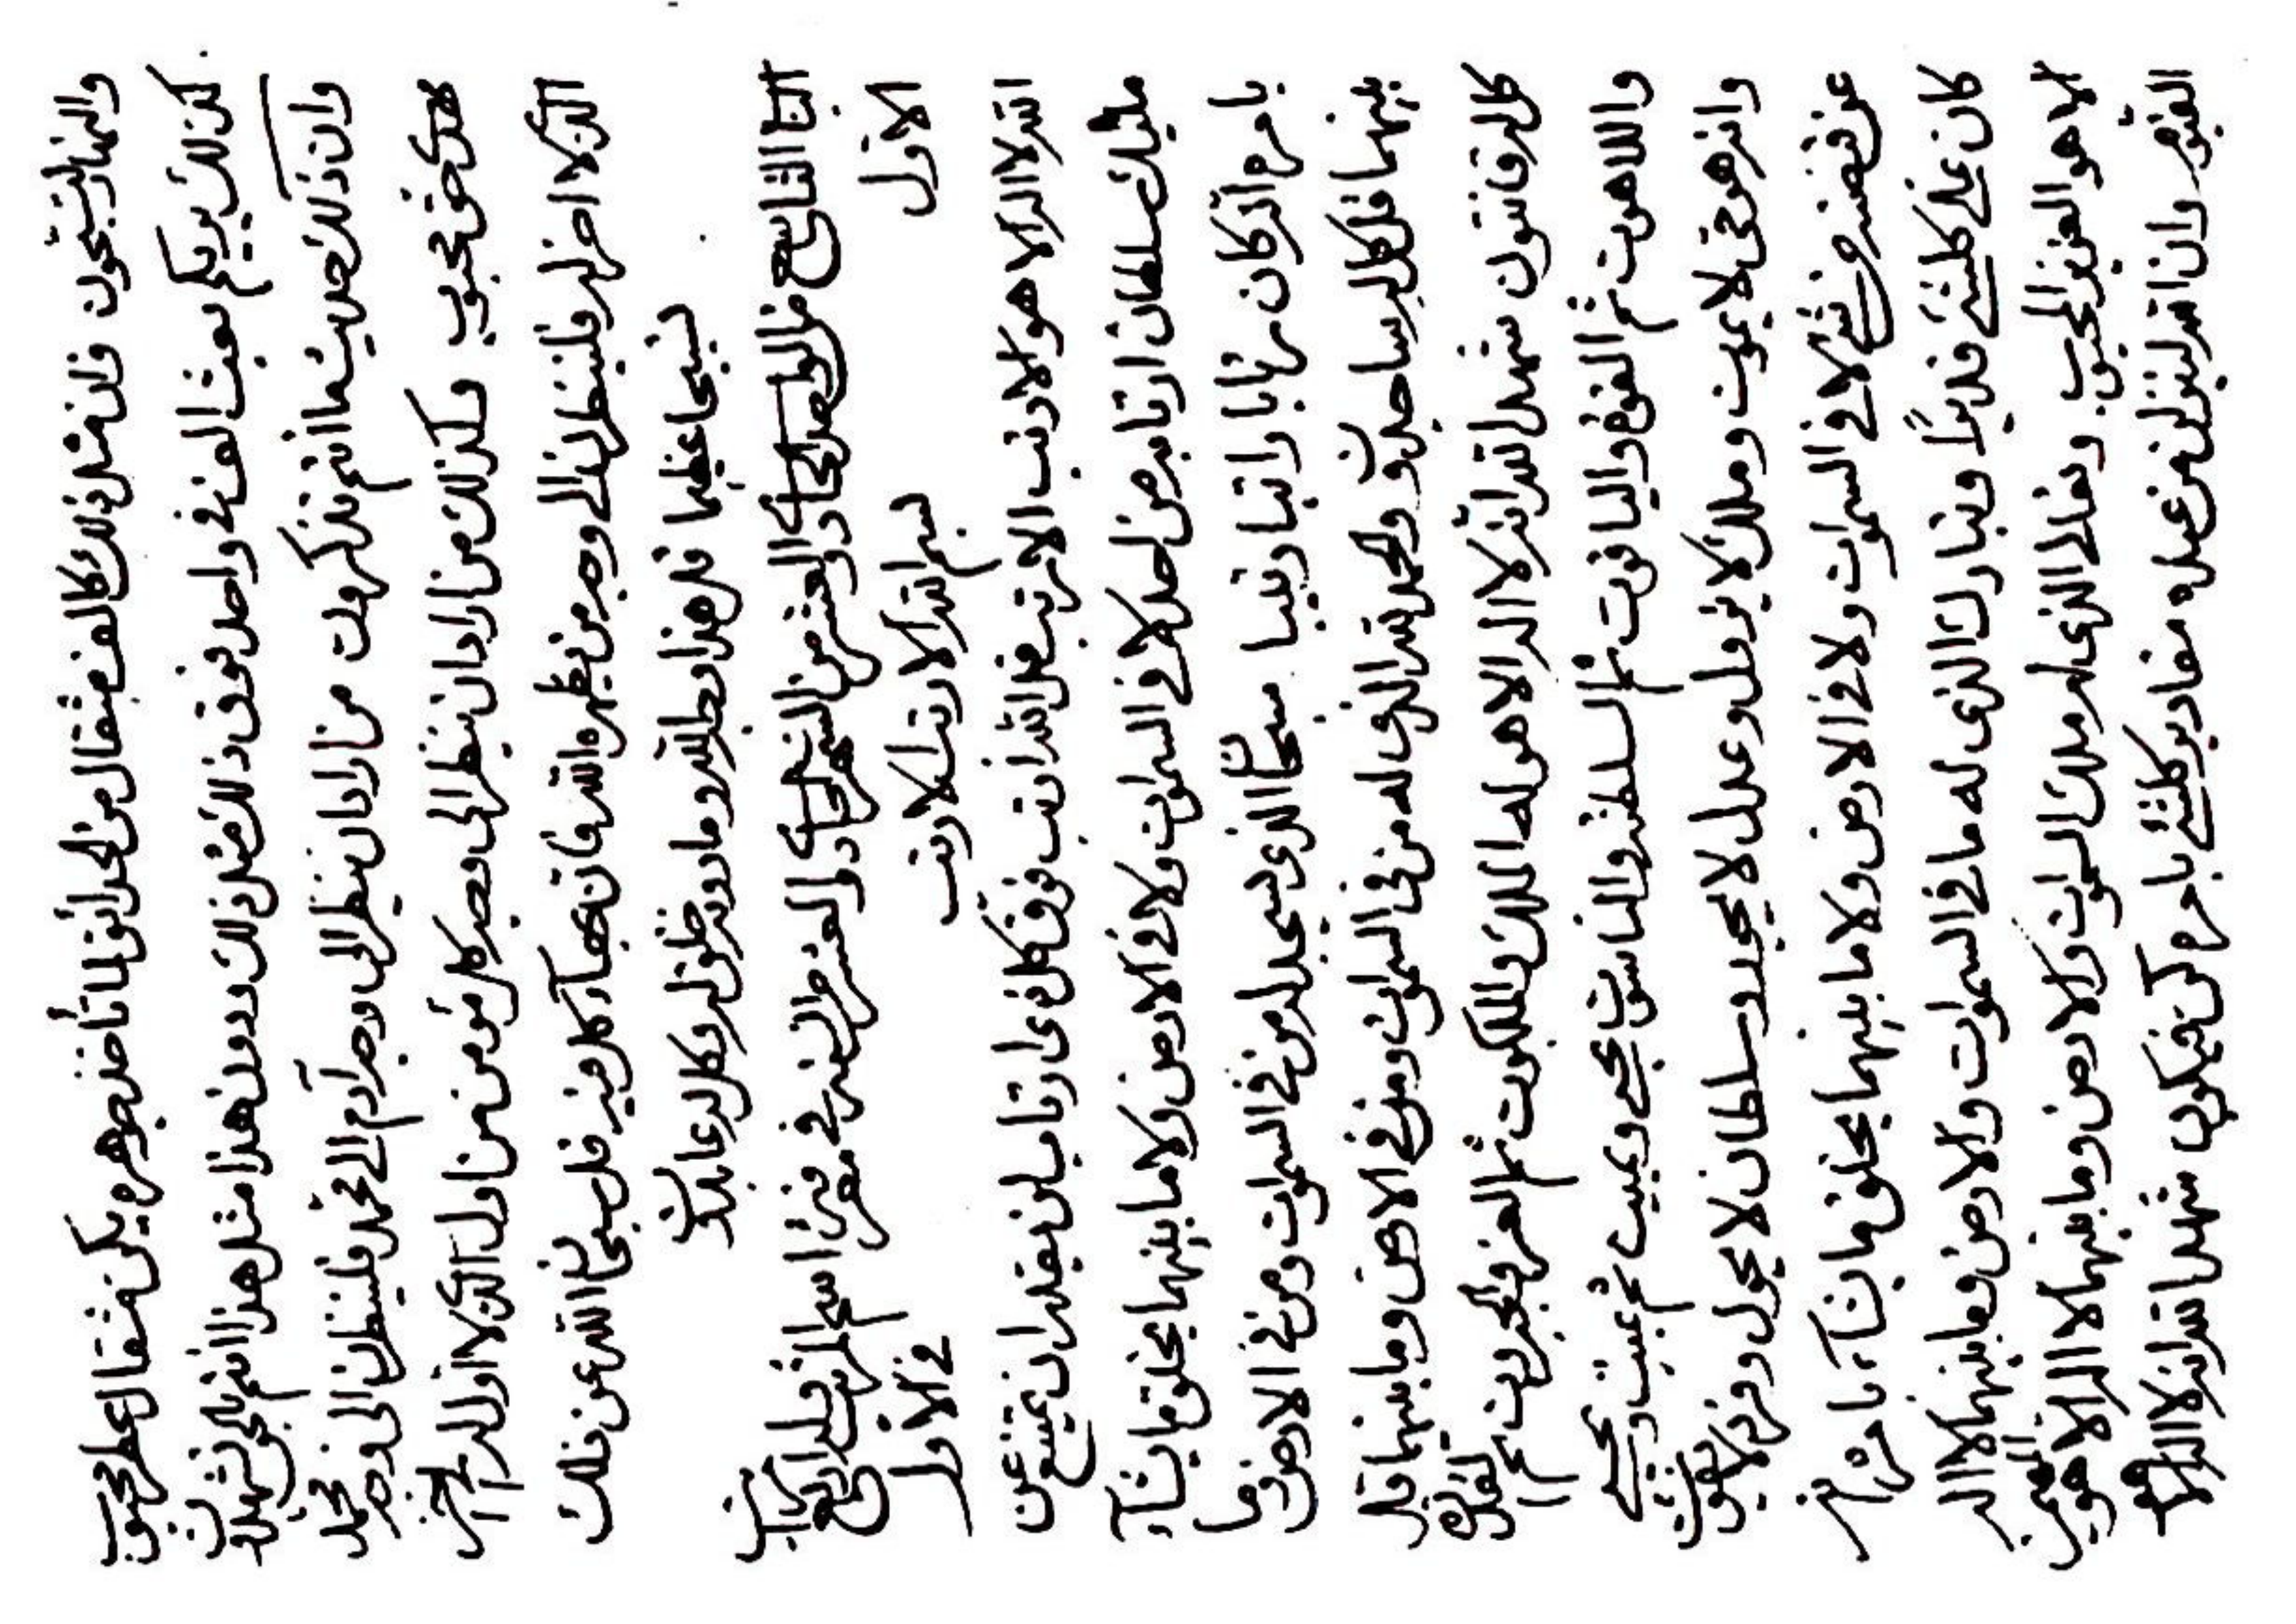 والنهار لتسبحون قل ان مثل ذلك كالف مثقال من الخمر انتم لما تأخذ جوهره يكن مثقال عطر محبوب
كذلك يريكم بعث الف في واحد فوق ذلك مثل ذلك ودون هذا مثل هذا انتم بالحق لتشهدون
وان ذلك حديث ما انتم تذكرون من اراد ان ينظر الى وجه آدم الى محمد فلينظرن الى وجه محمد
هذا حق محبوب وكذلك من اراد ان ينظر الى وجه كل مؤمن من اول الذي لا اول له الى آخر
الذي لا اخر له فلينظرن الى وجه من يظهره الله فان بهاء كل فيه قل سبحن الله عن ذلك
تسبيحا عظيما قل هذا وجه الله وما دونه خلق له وكل له عابدون
الباب التاسع من الواحد الحادي والعشر من الشهر الحادي والعشر من السنة في معرفة اسم المرتب وله اربع مراتب
الاول بسم الله الارتب الارتب في الاول
الله لا اله الا هو الارتب الارتب قل الله ارتب فوق كل ذي ارتاب لن يقدر ان يمتنع عن
مليك سلطان ارتابه من احد لا في السموات ولا في الارض ولا ما بينهما يخلق ما يشآء
بامره انه كان رتابا راتبا رتيبا سبحن الذي يسجد له من في السموات ومن في الارض وما
بينهما قل كل له ساجدون والحمد لله الذي له من في السموات ومن في الارض وما بينهما قل
كل له قانتون شهد الله انه لا اله الا هو له الملك والملكوت ثم العز والجبروت ثم القدرة
واللاهوت ثم القوة والياقوت ثم السلطنة والناسوت يحيي ويميت ثم يميت ويحيي
وانه هو حي لا يموت وملك لا يزول وعدل لا يجور وسلطان لا يحول وفرد لا يفوت
عن قبضته من شئ لا في السموات ولا في الارض ولا ما بينهما يخلق ما يشآء بامره انه
كان على كلشئ قديرًا وتبارك الذي له ما في السموات والارض وما بينهما لا اله
الا هو العزيز المحبوب وتعالى الذي له ملك السموات والارض وما بينهما لا اله الا هو المهيمن
القيوم وان الله لينزلن من عنده مقادير كلشئ بامره كن فيكون شهد الله انه لا اله الا هو